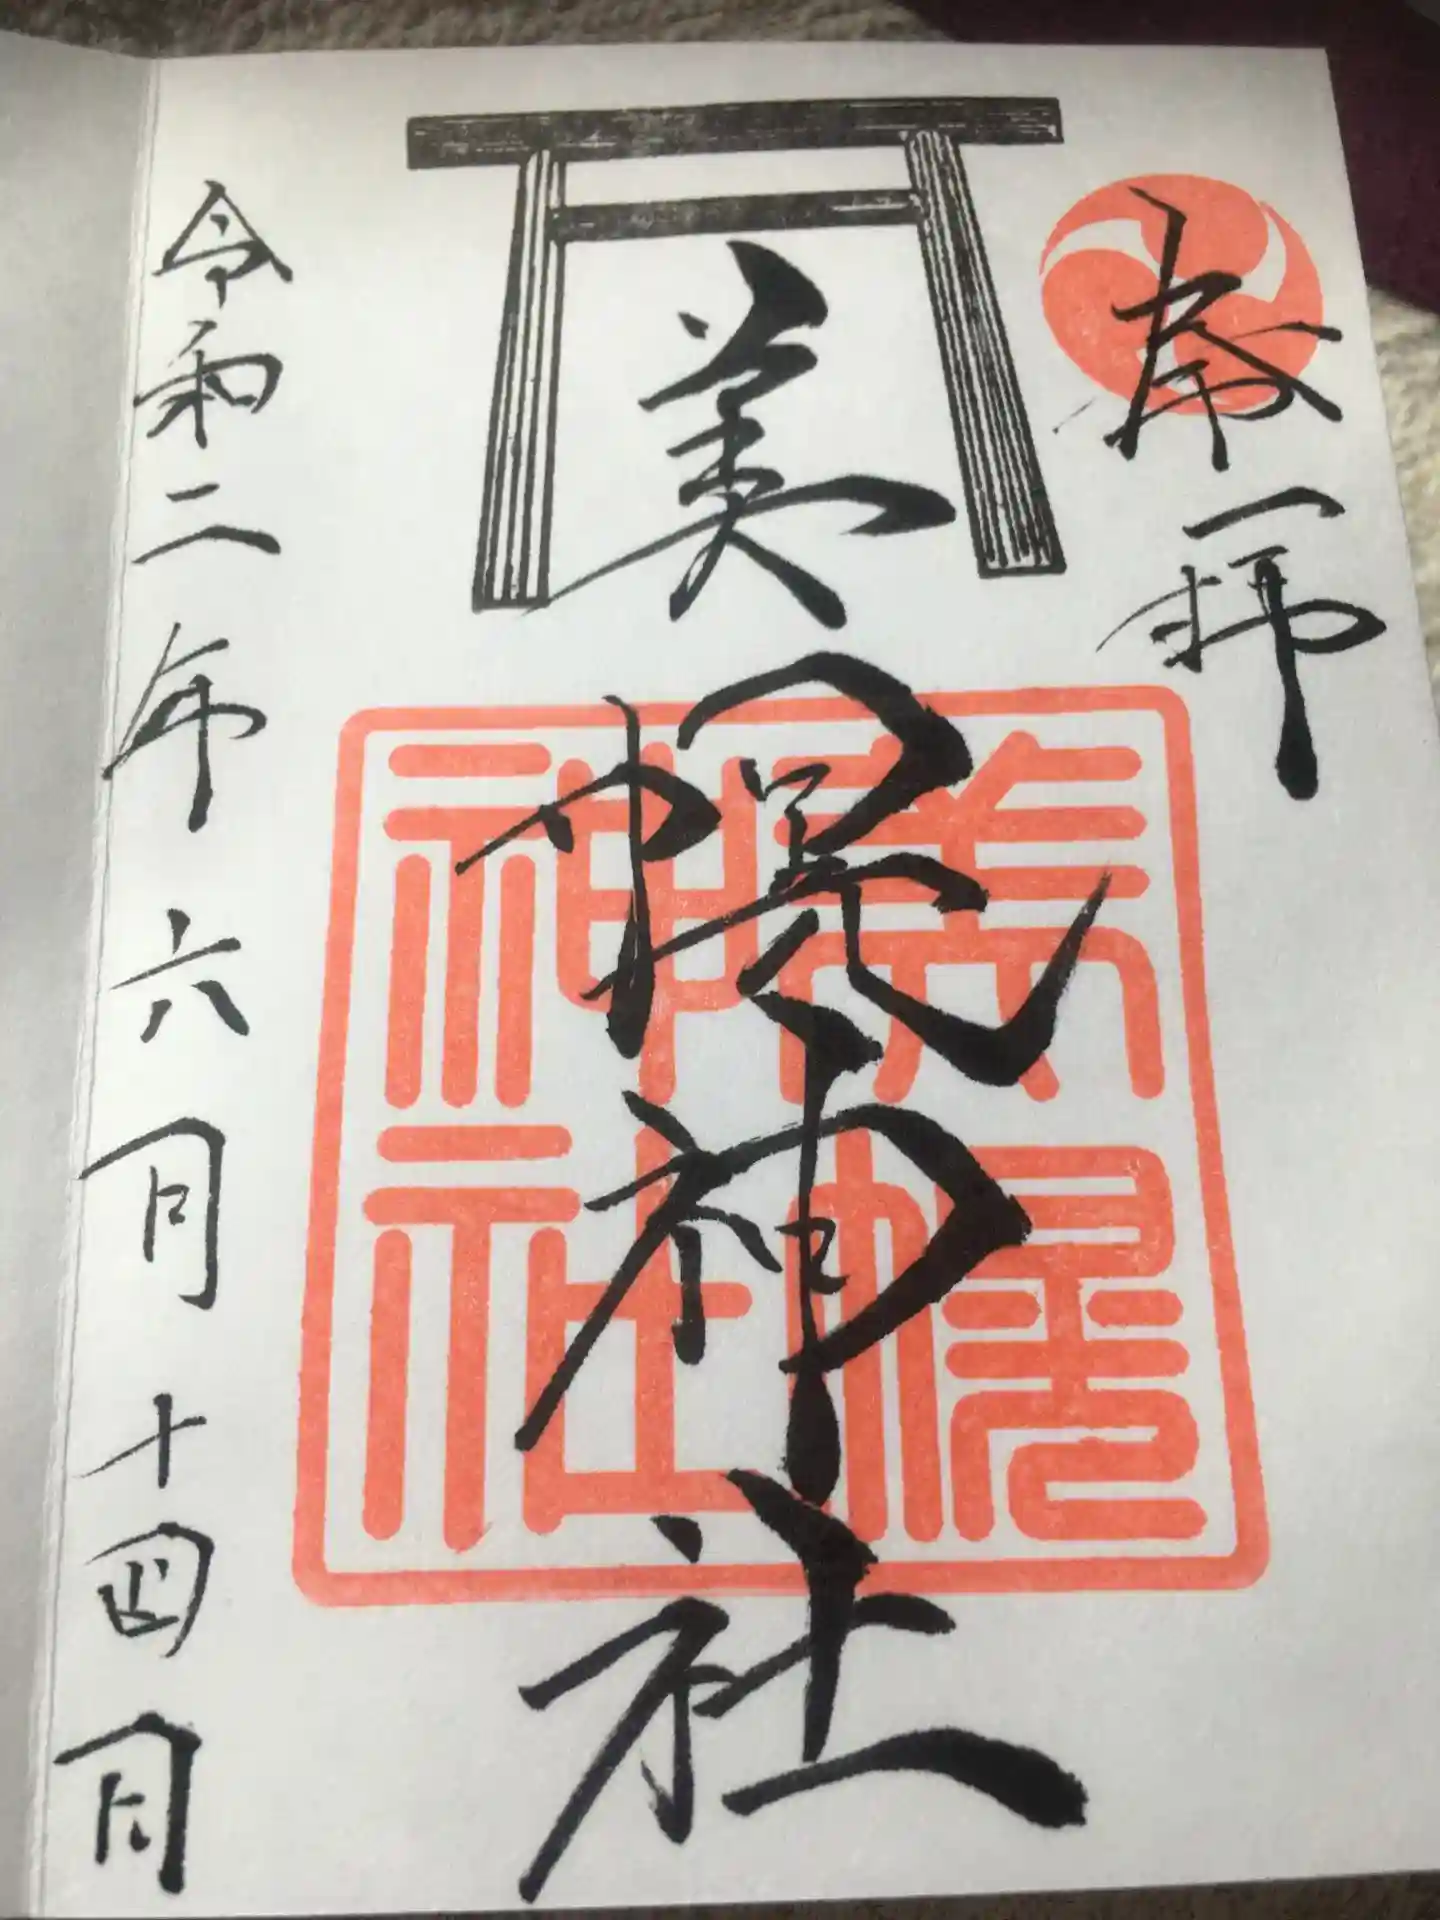 奉拝
美幌神社
美幌
神社
令和二年六月十四日